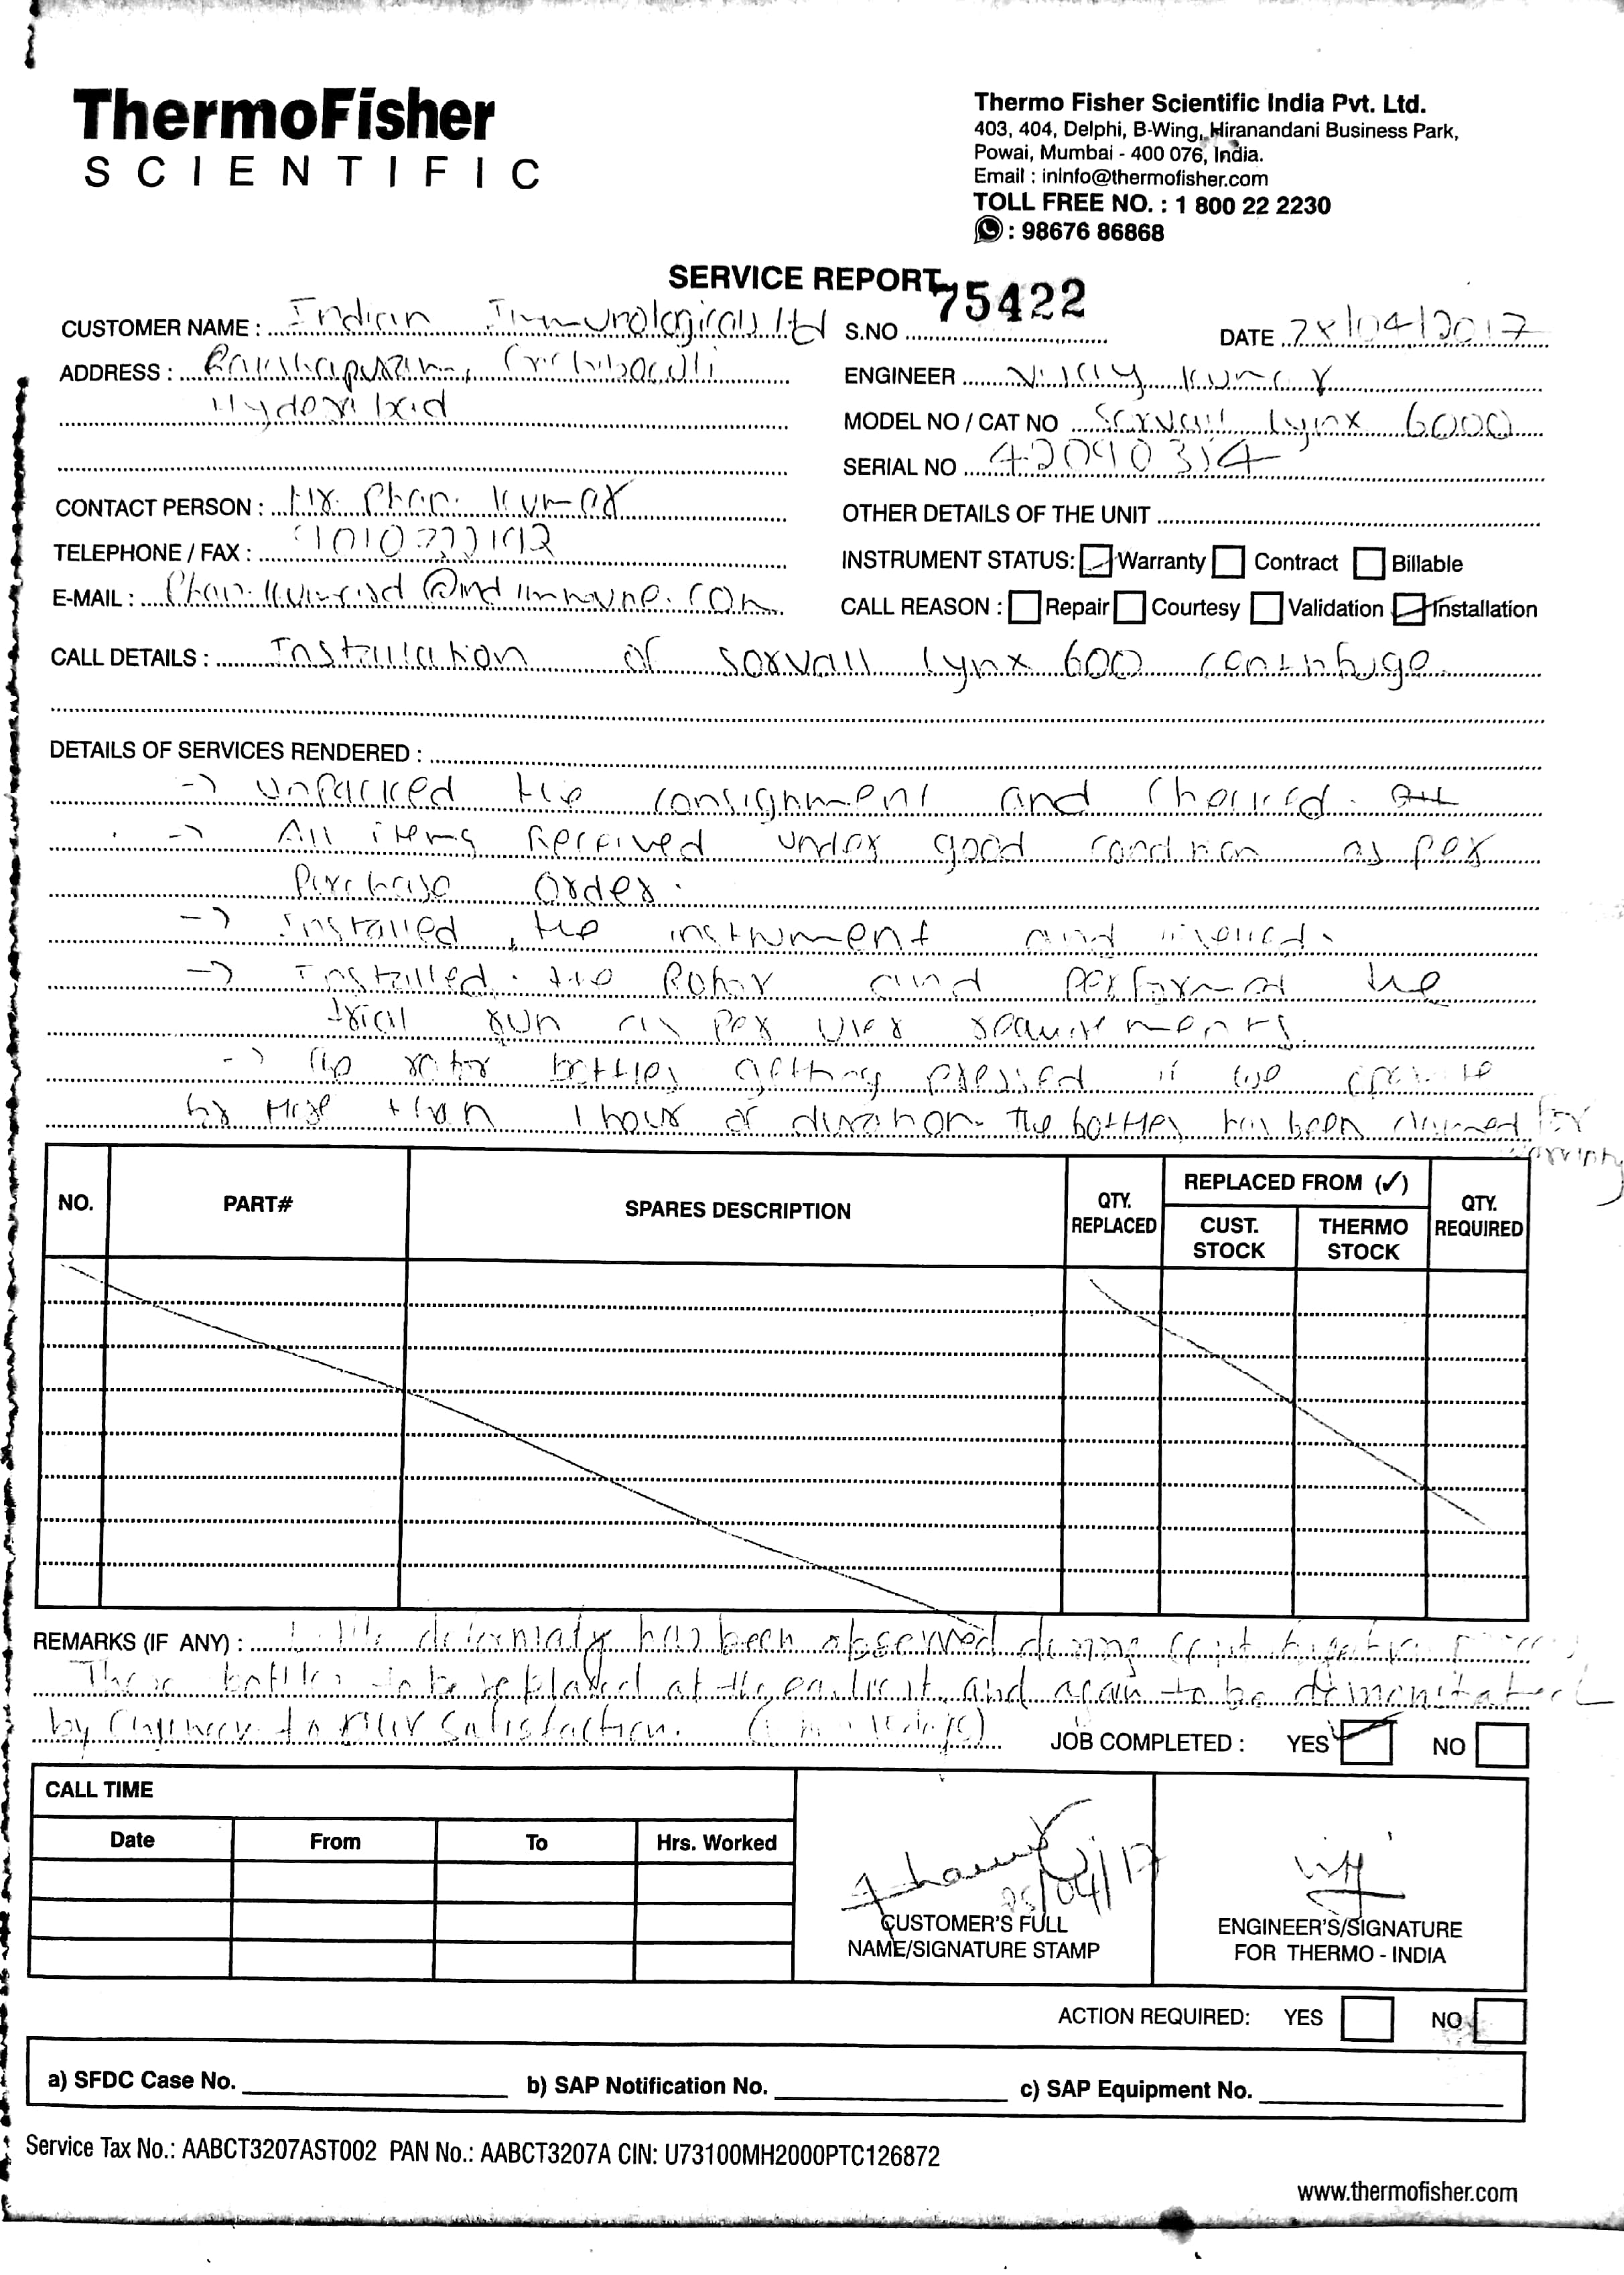 ThermoFisher
SCIENTIFIC
Thermo Fisher Scientific India Pvt. Ltd.
403, 404, Delphi, B-Wing, Hiranandani Business Park,
Powai, Mumbai - 400 076, India.
Email : inInfo@thermofisher.com
TOLL FREE NO. : 1 800 22 2230
: 98676 86868
SERVICE REPORT
CUSTOMER NAME : Indian Immunologicals ltd S.NO 75422 DATE 28/04/2017
ADDRESS : Rakshapuram, Gachibowli
Hyderabad
ENGINEER Vijay Kumar
MODEL NO / CAT NO Sorvall Lynx 6000
SERIAL NO 42090314
CONTACT PERSON : Mr. Phani Kumar
OTHER DETAILS OF THE UNIT
TELEPHONE / FAX :
INSTRUMENT STATUS: Warranty Contract Billable
E-MAIL :
CALL REASON : Repair Courtesy Validation Installation
CALL DETAILS : Installation of Sorvall Lynx 600 centrifuge
DETAILS OF SERVICES RENDERED :
-> Unpacked the consignment and checked.
-> All items Received under good condition as per
Purchase Order.
-> Installed the instrument and
-> Installed the Rotor and performed the
trial run as per user requirements.
-> The rotor bottles getting pressed if we operate
for more than 1 hour of duration. The bottles has been claimed for
warranty
NO. PART# SPARES DESCRIPTION QTY. REPLACED REPLACED FROM (✓) QTY. REQUIRED
CUST. STOCK THERMO STOCK
REMARKS (IF ANY) : Bottle deformaty has been observed during centrifugation process
These bottles to be replaced at the earliest and again to be demonstrated
by Engineer to our satisfaction. JOB COMPLETED : YES NO
CALL TIME
Date From To Hrs. Worked
CUSTOMER'S FULL
NAME/SIGNATURE STAMP
ENGINEER'S/SIGNATURE
FOR THERMO - INDIA
ACTION REQUIRED: YES NO
a) SFDC Case No. b) SAP Notification No. c) SAP Equipment No.
Service Tax No.: AABCT3207AST002 PAN No.: AABCT3207A CIN: U73100MH2000PTC126872
www.thermofisher.com